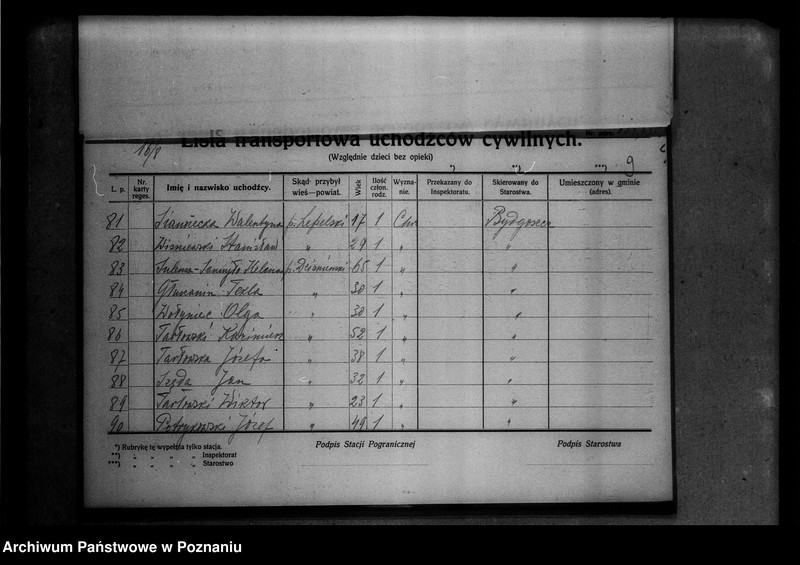 16/8
Lista transportowa uchodźców cywilnych.
(Względnie dzieci bez opieki)
*) **) ***) 9
L. p. Nr. karty reges. Imię i nazwisko uchodźcy. Skąd przybył wieś—powiat. Wiek Ilość człon. rodz. Wyznanie. Przekazany do Inspektoratu. Skierowany do Starostwa. Umieszczony w gminie (adres).
81 Walentyna p. Lepelski 17 1 Chr Bydgoszcz
82 Wiśniewski Stanisław " 29 1 " "
83 Helena p. Dziśnieński 65 1 " "
84 Tekla " 30 1 " "
85 Wołyniec Olga " 30 1 " "
86 Tarłowski Kazimierz " 52 1 " "
87 Tarłowska Józefa " 38 1 " "
88 Jan " 32 1 " "
89 Tarłowski Wiktor " 23 1 " "
90 Piotrowski Józef " 49 1 " "
*) Rubrykę tę wypełnia tylko stacja.
**) " " " " Inspektorat
***) " " " " Starostwo
Podpis Stacji Pogranicznej
Podpis Starostwa
Archiwum Państwowe w Poznaniu